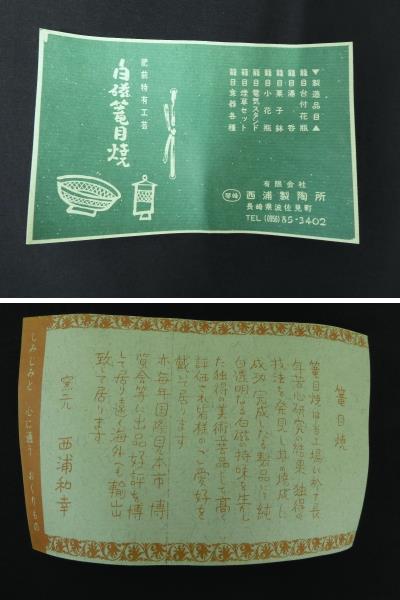 ▼製造品目▲
籠目台付花瓶
籠目湯呑
籠目菓子鉢
籠目小花瓶
籠目電気スタンド
籠目煙草セット
籠目食器各種
肥前特有工芸
白磁篭目焼
有限会社
西浦製陶所
長崎県波佐見町
TEL (0956) 85-3402
篭目焼
篭目焼は当工場に於て長
年苦心研究の結果 独得の
技法を発見し其の焼成に
成功 完成したる製品にて純
白透明なる白磁の特味を生かし
た独得の美術工芸品として高く
評価され皆様のご愛好を
戴いて居ります
亦毎年国際見本市 博
覧会等に出品 好評を博
して居り遠く海外へも輸出
致して居ります
窯元 西浦和幸
しみじみと 心に通う おくりもの